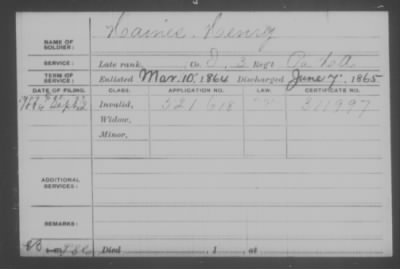 Haines, Henry
NAME OF SOLDIER:
SERVICE: Late rank, Co. D, 3 Reg't Pa. H.A.
TERM OF SERVICE: Enlisted Mar. 10, 1864 Discharged June 7, 1865
DATE OF FILING. CLASS. APPLICATION NO. LAW. CERTIFICATE NO.
Invalid, 521 618 311997
Widow,
Minor,
ADDITIONAL SERVICES:
REMARKS:
Died , 1 , at